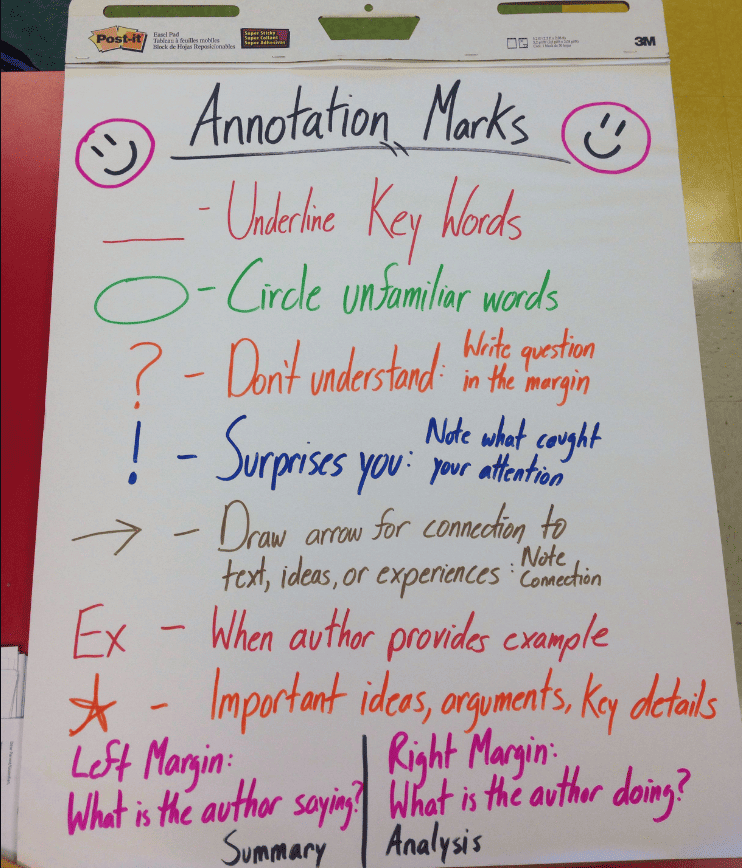 Post-it
Easel Pad
Tableau à feuilles mobiles
Block de Hojas Reposicionables
Super Sticky
Super Collant
Super Adhesivas
3M
Annotation Marks
- Underline Key Words
- Circle unfamiliar words
? - Don't understand: Write question
in the margin
! - Surprises you: Note what caught
your attention
→ - Draw arrow for connection to
text, ideas, or experiences: Note
Connection
Ex - When author provides example
- Important ideas, arguments, key details
Left Margin:
What is the author saying?
Summary
Right Margin:
What is the author doing?
Analysis